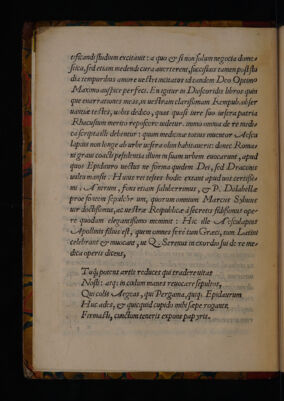 tificandi studium excitauit: a quo & si non solum negocia dome
stica, sed etiam medendi cura auerterent, succisiuis tamen post stu
dia temporibus amore uestri incitatus id tandem Deo Optimo
Maximo auspice perfeci. En igitur in Dioscoridis libros quin
que enarrationes meas, in uestram clarissimam Rempub. obser
uantiæ testes, uobis dedico, quas quasi iure suo uestra patria
Rhacusium merito reposcere uidetur. immo omnia de re medi
ca scripta illi debentur: quum medicinæ totius inuentor Aescu
lapius non longe ab urbe uestra olim habitauerit: donec Roma
ni graui coacti pestilentia illum in suam urbem euocarunt, apud
quos Epidauro uectus in forma quidem Dei, sed Draconis
uisus insedit: Huius rei uestes hodie extant apud uos certissi
mi: Antrum, fons etiam saluberrimus, & P. Dolabellæ
proconsulis sepulchrum, quorum omnium Marcus Sylui
uir doctissimus, ac uestræ Reipublicæ à secretis fidissimus ope-
re quodam elegantissimo meminit: Hic ille Aesculapius
Apollinis filius est, quem omnes fere tum Græci, tum Latini
celebrant & inuocant, ut Q. Serenus in exordio sui de re me
dica operis dicens,
Tuq; potens artis reduces qui tradere uitas
Nosti: atq; in cœlum manes reuocare sepultos,
Qui colis Aegeas, qui Pergama, quiq; Epidaurum
Huc ades, & quicquid cupido mihi sæpe roganti
Firmasti, cunctum teneris expone papyris.